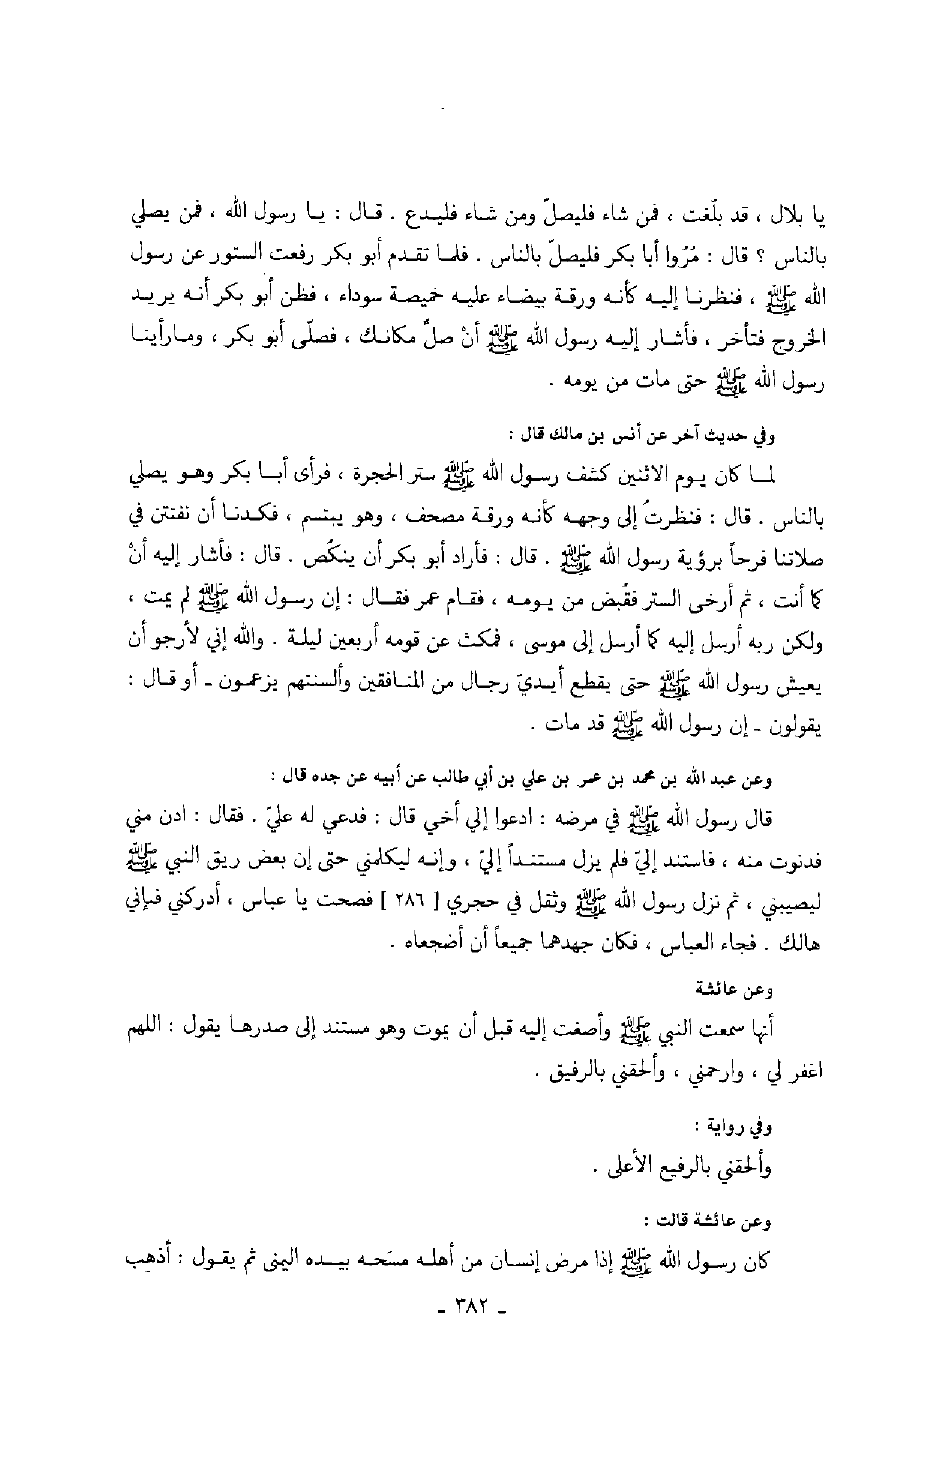 يا بلال ، قد بلّغت ، فمن شاء فليصلّ ومن شاء فليدع . قال : يا رسول الله ، فمن يصلي
بالناس ؟ قال : مُرُوا أبا بكر فليصلّ بالناس . فلما تقدم أبو بكر رفعت الستور عن رسول
الله ﷺ ، فنظرنا إليه كأنه ورقة بيضاء عليه خميصة سوداء ، فظن أبو بكر أنه يريد
الخروج فتأخر ، فأشار إليه رسول الله ﷺ أنْ صلِّ مكانك ، فصلّى أبو بكر ، وما رأينا
رسول الله ﷺ حتى مات من يومه .
وفي حديث آخر عن أنس بن مالك قال :
لما كان يوم الاثنين كشف رسول الله ﷺ ستر الحجرة ، فرأى أبا بكر وهو يصلي
بالناس . قال : فنظرتُ إلى وجهه كأنه ورقة مصحف ، وهو يبتسم ، فكدنا أن نفتتن في
صلاتنا فرحاً برؤية رسول الله ﷺ . قال : فأراد أبو بكر أن ينكُص . قال : فأشار إليه أنْ
كما أنت ، ثم أرخى الستر فقُبض من يومه ، فقام عمر فقال : إن رسول الله ﷺ لم يمت ،
ولكن ربه أرسل إليه كما أرسل إلى موسى ، فمكث عن قومه أربعين ليلة . والله إني لأرجو أن
يعيش رسول الله ﷺ حتى يقطع أيديَ رجال من المنافقين وألسنتهم يزعمون - أو قال :
يقولون - إن رسول الله ﷺ قد مات .
وعن عبد الله بن محمد بن عمر بن علي بن أبي طالب عن أبيه عن جده قال :
قال رسول الله ﷺ في مرضه : ادعوا إلي أخي قال : فدعي له عليّ . فقال : ادن مني
فدنوت منه ، فاستند إليّ فلم يزل مستنداً إليّ ، وإنه ليكلمني حتى إن بعض ريق النبي ﷺ
ليصيبني ، ثم نزل رسول الله ﷺ وثقل في حجري [ ٢٨٦ ] فصحت يا عباس ، أدركني فإني
هالك . فجاء العباس ، فكان جهدهما جميعاً أن أضجعاه .
وعن عائشة
أنها سمعت النبي ﷺ وأصغت إليه قبل أن يموت وهو مستند إلى صدرها يقول : اللهم
اغفر لي ، وارحمني ، وألحقني بالرفيق .
وفي رواية :
وألحقني بالرفيع الأعلى .
وعن عائشة قالت :
كان رسول الله ﷺ إذا مرض إنسان من أهله مسَحه بيده اليمنى ثم يقول : أذهب
- ٣٨٢ -